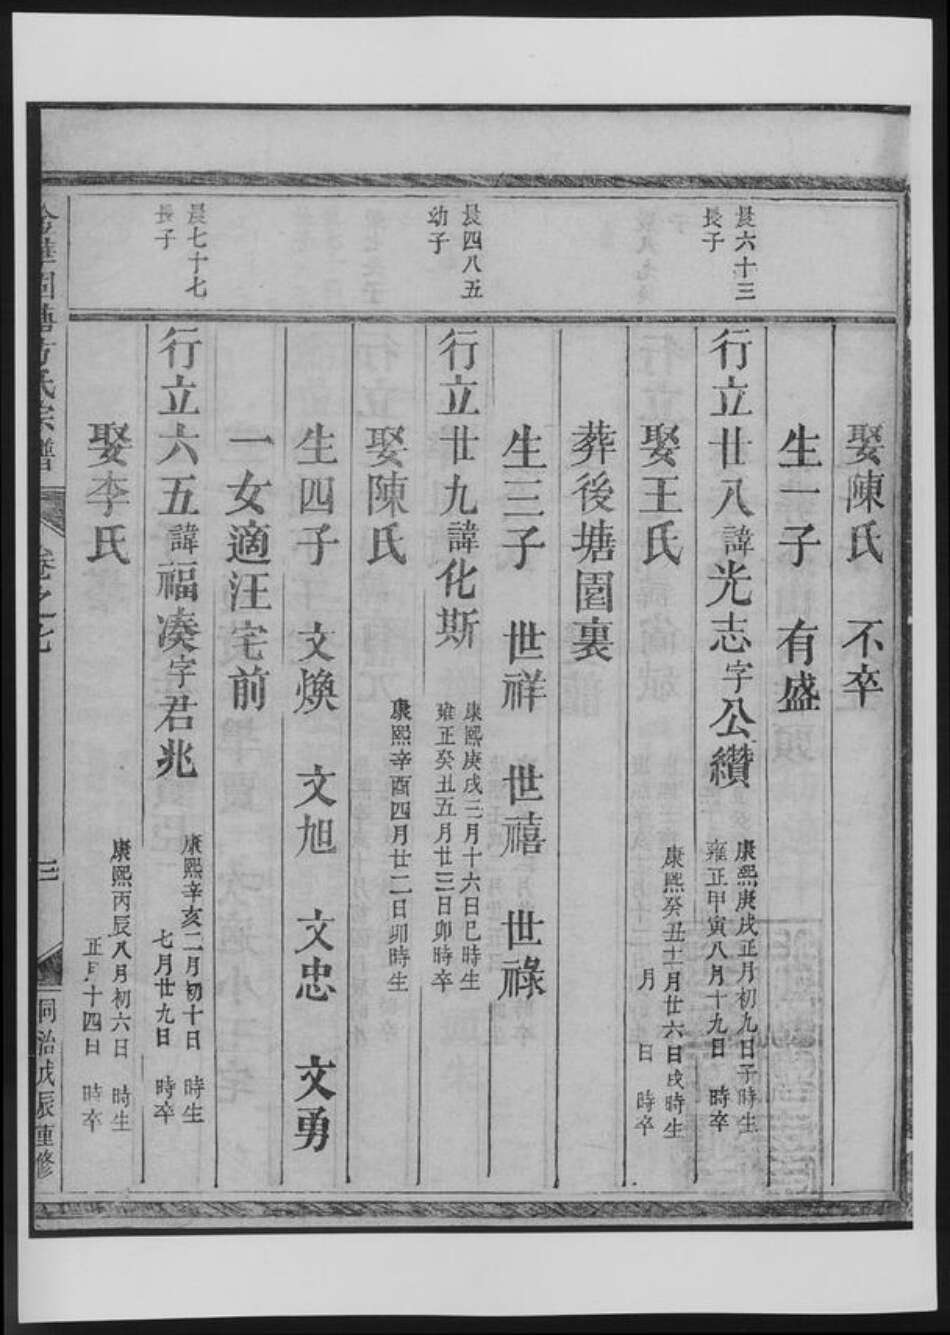 娶陳氏　不卒
生一子　有盛
晨六十三
長子
行立廿八諱光志字公纘
康熙庚戌正月初九日子時生
雍正甲寅八月十九日　時卒
娶王氏
康熙癸丑十一月廿六日戌時生
月　日　時卒
葬後塘園裏
生三子　世祥　世禧　世祿
晨四八五
幼子
行立廿九諱化斯
康熙庚戌三月十六日巳時生
雍正癸丑五月廿三日卯時卒
娶陳氏
康熙辛酉四月廿二日卯時生
生四子　文煥　文旭　文忠　文勇
一女適汪宅前
晨七十七
長子
行立六五諱福湊字君兆
康熙辛亥二月初十日　時生
七月廿九日　時卒
娶李氏
康熙丙辰八月初六日　時生
正月十四日　時卒
方氏宗譜
卷之七
同治戊辰重修